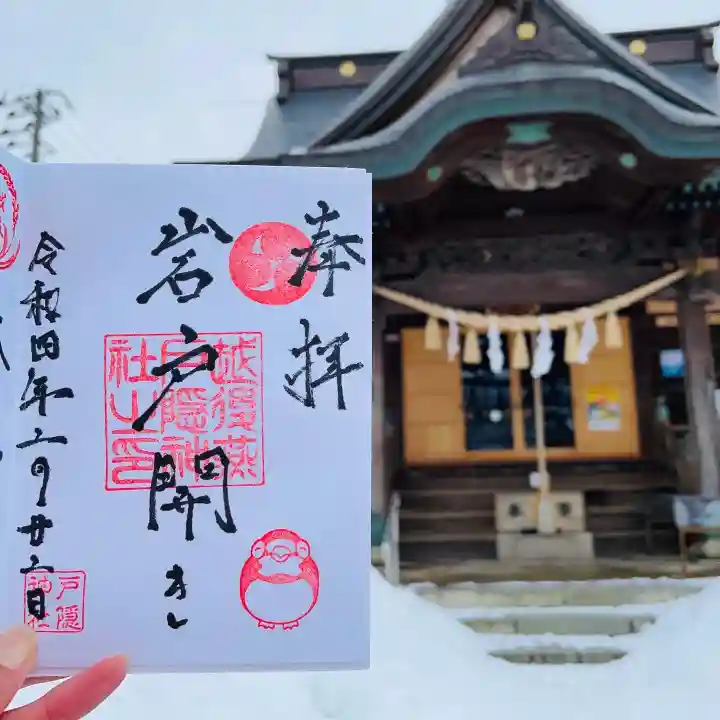 奉拝
岩戸開きし
越後燕
戸隠神
社之印
令和四年二月廿二日
戸隠
神社